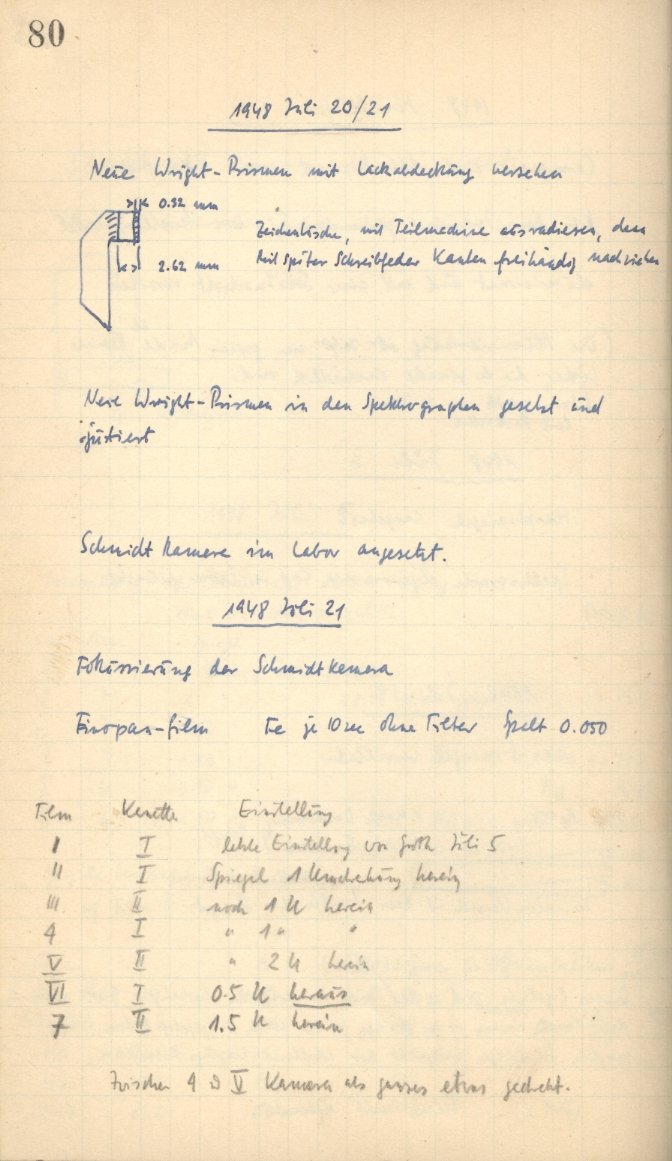 80
1948 Juli 20/21
Neue Wright-Prismen mit Lackabdeckung versehen
0.32 mm
Zeichentusche, mit Teilmaschine ausradieren, dann
2.62 mm
mit spitzer Schreibfeder Kanten freihändig nachziehen
Neue Wright-Prismen in den Spektrographen gesetzt und
justiert
Schmidt Kamera im Labor angesetzt.
1948 Juli 21
Fokussierung der Schmidtkamera
Finopan-film Fe je 10 sec ohne Filter Spalt 0.050
Film Kassette Einstellung
I I letzte Einstellung von Juli 5
II I Spiegel 1 Umdrehung herein
III II noch 1 U herein
4 I " 1 " "
V II " 2 U herein
VI I 0.5 U heraus
7 II 1.5 U herein
Zwischen 4 u V Kamera als ganzes etwas gedreht.